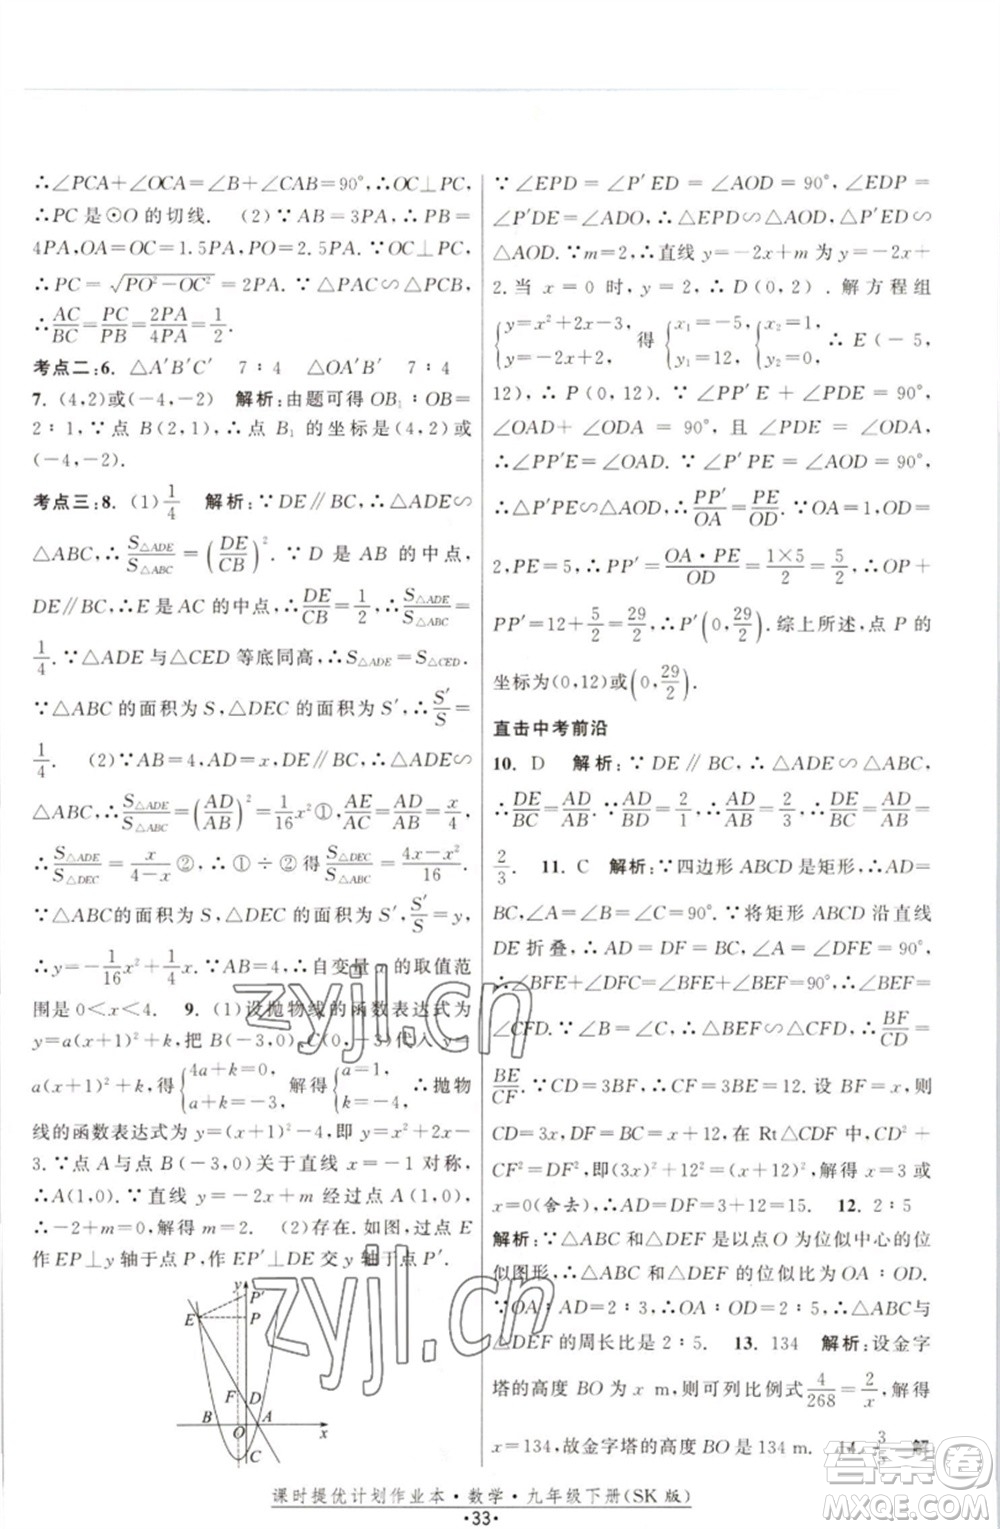 ∴∠PCA+∠OCA=∠B+∠CAB=90°,∴OC⊥PC,
∴PC是⊙O的切线. (2)∵AB=3PA,∴PB=
4PA,OA=OC=1.5PA,PO=2.5PA.∵OC⊥PC,
∴PC=√(PO²-OC²)=2PA.∵△PAC∽△PCB,
∴AC/BC=PC/PB=2PA/4PA=1/2.
考点二:6. △A′B′C′ 7∶4 △OA′B′ 7∶4
7. (4,2)或(-4,-2) 解析:由题可得OB₁∶OB=
2∶1,∵点B(2,1),∴点B₁的坐标是(4,2)或
(-4,-2).
考点三:8. (1)1/4 解析:∵DE∥BC,∴△ADE∽
△ABC,∴S△ADE/S△ABC=(DE/CB)².∵D是AB的中点,
DE∥BC,∴E是AC的中点,∴DE/CB=1/2,∴S△ADE/S△ABC=
1/4.∵△ADE与△CED等底同高,∴S△ADE=S△CED.
∵△ABC的面积为S,△DEC的面积为S′,∴S′/S=
1/4. (2)∵AB=4,AD=x,DE∥BC,∴△ADE∽
△ABC,∴S△ADE/S△ABC=(AD/AB)²=1/16x²①,AE/AC=AD/AB=x/4,
∴S△ADE/S△DEC=x/(4-x)②,∴①÷②得S△DEC/S△ABC=(4x-x²)/16.
∵△ABC的面积为S,△DEC的面积为S′,S′/S=y,
∴y=-1/16x²+1/4x.∵AB=4,∴自变量x的取值范
围是0<x<4. 9. (1)设抛物线的函数表达式为
y=a(x+1)²+k,把B(-3,0),C(0,-3)代入y=
a(x+1)²+k,得{4a+k=0,a+k=-3,解得{a=1,k=-4.∴抛物
线的函数表达式为y=(x+1)²-4,即y=x²+2x-
3.∵点A与点B(-3,0)关于直线x=-1对称,
∴A(1,0).∵直线y=-2x+m经过点A(1,0),
∴-2+m=0,解得m=2. (2)存在.如图,过点E
作EP⊥y轴于点P,作EP′⊥DE交y轴于点P′.
y
P′
E P
F D
B O A x
C
∵∠EPD=∠P′ED=∠AOD=90°,∠EDP=
∠P′DE=∠ADO,∴△EPD∽△AOD,△P′ED∽
△AOD.∵m=2,∴直线y=-2x+m为y=-2x+
2.当x=0时,y=2,∴D(0,2).解方程组
{y=x²+2x-3,y=-2x+2,得{x₁=-5,y₁=12,{x₂=1,y₂=0.∴E(-5,
12),∴P(0,12).∵∠PP′E+∠PDE=90°,
∠OAD+∠ODA=90°,且∠PDE=∠ODA,
∴∠PP′E=∠OAD.∵∠P′PE=∠AOD=90°,
∴△P′PE∽△AOD,∴PP′/OA=PE/OD.∵OA=1,OD=
2,PE=5,∴PP′=OA·PE/OD=1×5/2=5/2,∴OP+
PP′=12+5/2=29/2,∴P′(0,29/2).综上所述,点P的
坐标为(0,12)或(0,29/2).
直击中考前沿
10. D 解析:∵DE∥BC,∴△ADE∽△ABC,
∴DE/BC=AD/AB.∵AD/BD=2/1,∴AD/AB=2/3,∴DE/BC=AD/AB=
2/3. 11. C 解析:∵四边形ABCD是矩形,∴AD=
BC,∠A=∠B=∠C=90°.∵将矩形ABCD沿直线
DE折叠,∴AD=DF=BC,∠A=∠DFE=90°,
∴∠BFE+∠DFC=∠BFE+∠BEF=90°,∴∠BEF=
∠CFD,∴△BEF∽△CFD,∴BF/CD=
BE/CF.∵CD=3BF,∴CF=3BE=12.设BF=x,则
CD=3x,DF=BC=x+12.在Rt△CDF中,CD²+
CF²=DF²,即(3x)²+12²=(x+12)²,解得x=3或
x=0(舍去),∴AD=DF=3+12=15. 12. 2∶5
解析:∵△ABC和△DEF是以点O为位似中心的位
似图形,∴△ABC和△DEF的位似比为OA∶OD.
∵OA∶AD=2∶3,∴OA∶OD=2∶5,∴△ABC与
△DEF的周长比是2∶5. 13. 134 解析:设金字
塔的高度BO为x m,则可列比例式4/268=2/x,解得
x=134,故金字塔的高度BO是134 m. 14. 解
课时提优计划作业本·数学·九年级下册(SK版)
·33·
zyjl.cn
zyjl.cn
答案圈
MXQE.COM